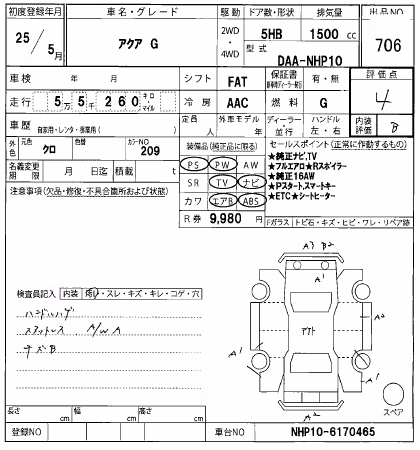 初度登録年月
25 / 5月
車名・グレード
アクア G
駆動
2WD
・
4WD
ドア数・形状
5HB
排気量
1500 cc
型式
DAA-NHP10
出品NO
706
車検 年 月
シフト FAT
保証書
有・無
評価点
4
走行 5万5千260 キロ・マイル
冷房 AAC
燃料 G
車歴
自家用・レンタ・事業用( )
定員 人
外車モデル 年
ディーラー・並行
ハンドル 左・右
内装評価 B
外色 元色 クロ
色替
カラーNO 209
名義変更期限 月 日迄
積載 t
装備品(純正品に限る)
PS PW AW
SR TV ナビ
カワ エアB ABS
R券 9,980 円
セールスポイント(正常に作動するもの)
★純正ナビ,TV
★フルエアロ★Rスポイラー
★純正16AW
★Pスタート,スマートキー
★ETC★シートヒーター
注意事項(欠品・修復・不具合箇所および状態)
Fガラス(トビ石・キズ・ヒビ・ワレ・リペア跡
検査員記入(内装)(汚し・スレ・キズ・キレ・コゲ・穴)
A3 B2
A1
A2
A1
アクア
A1
A1
A2
スペア
長さ cm
幅 cm
高さ cm
登録NO
車台NO NHP10-6170465